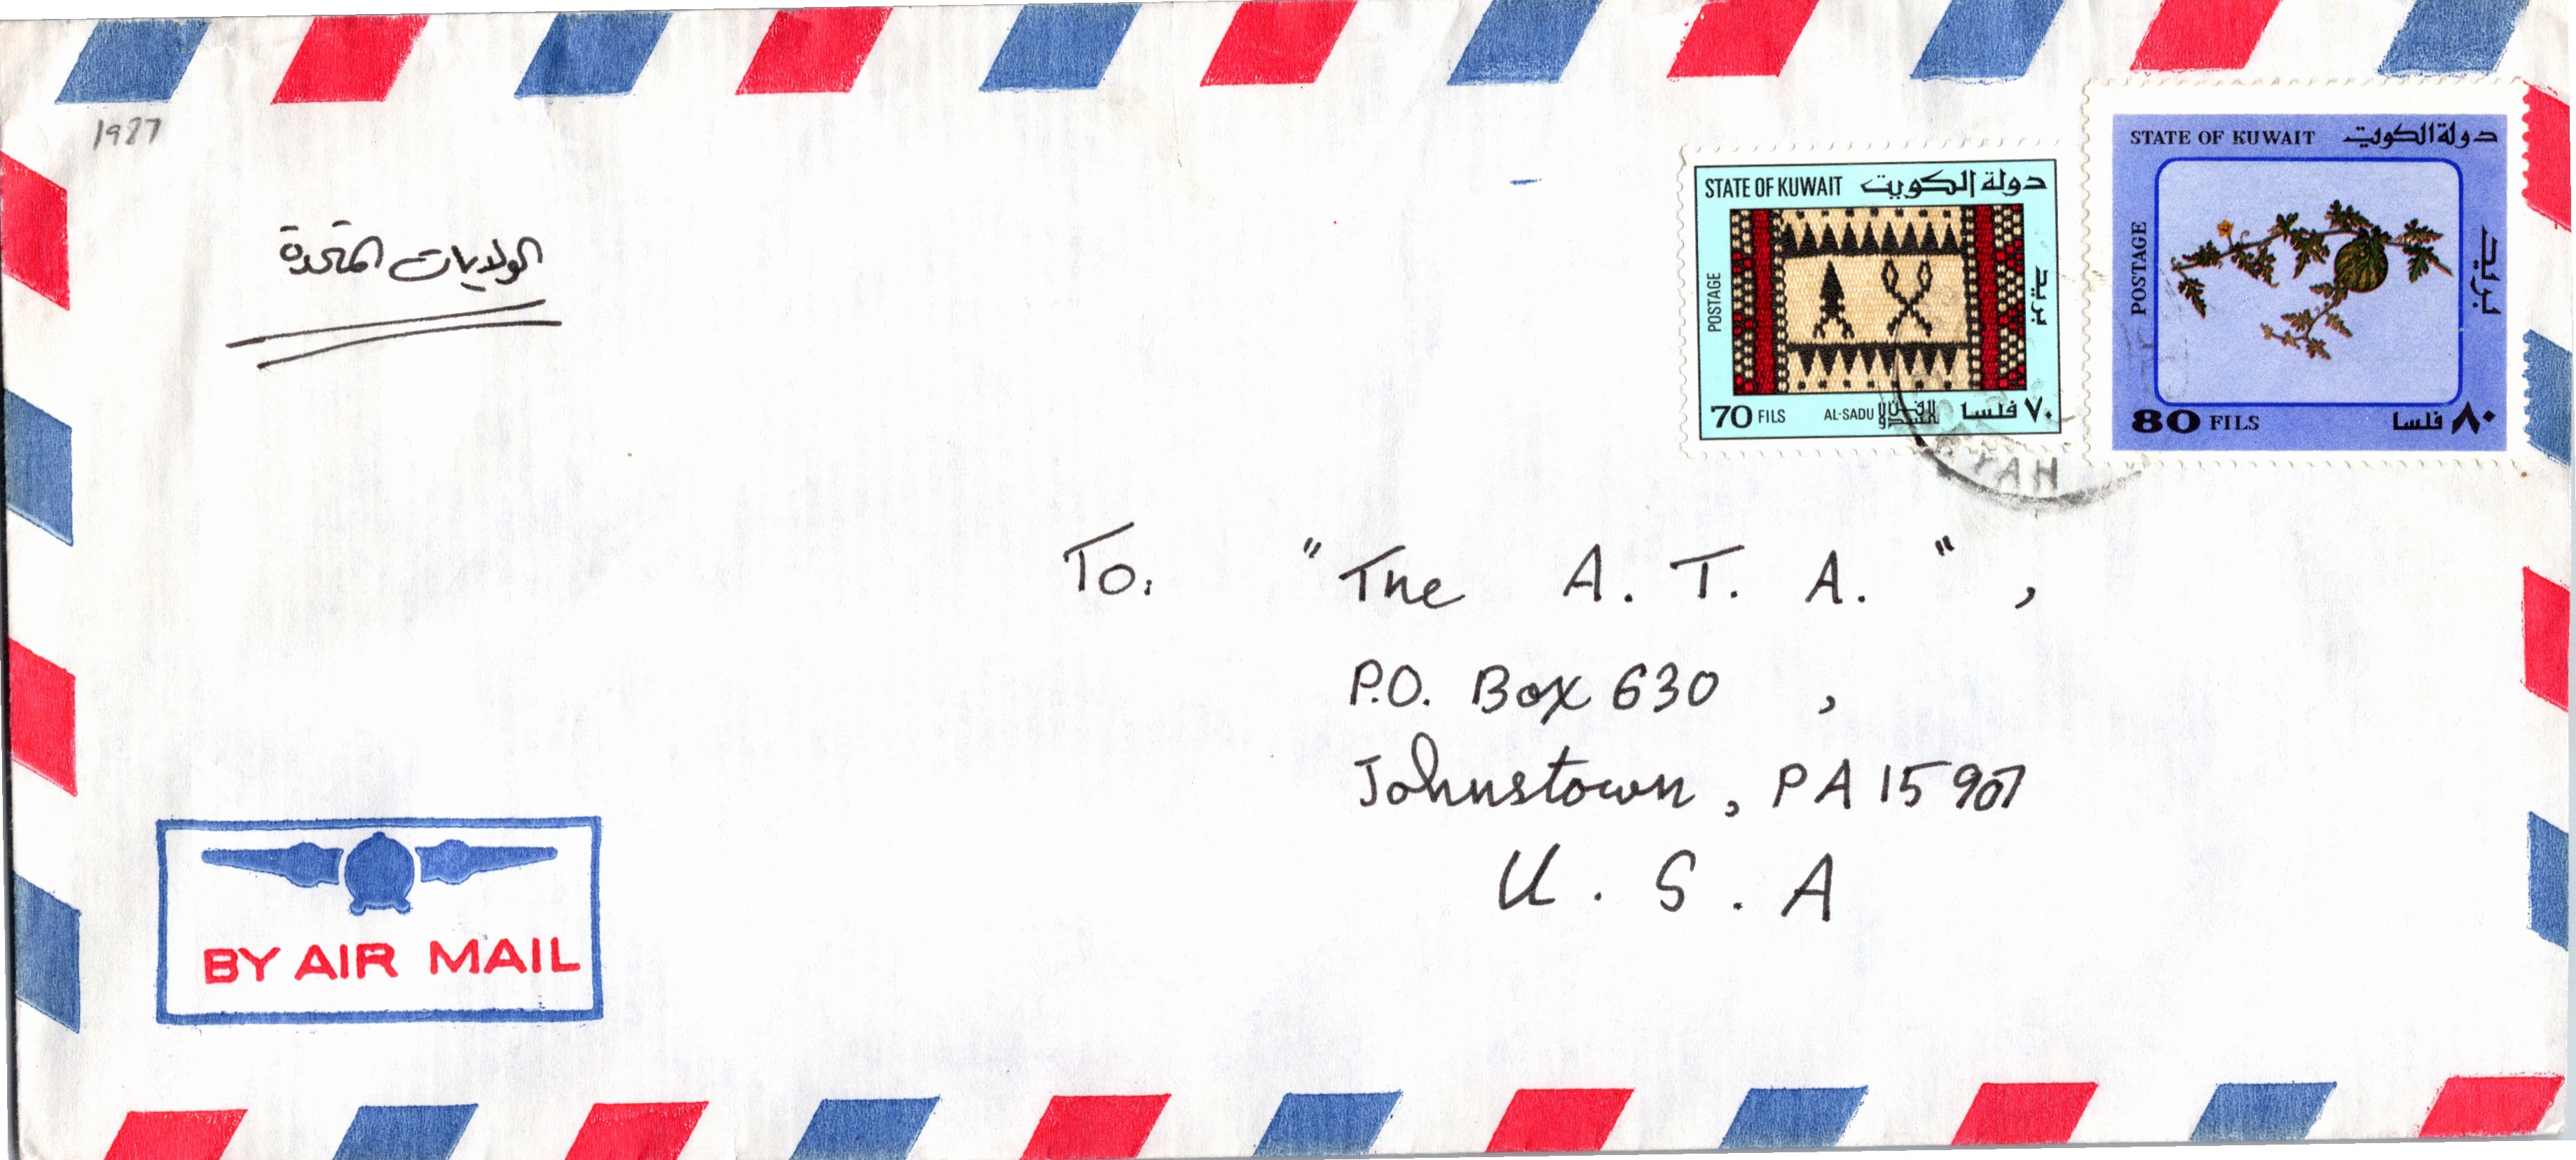 1987
الولايات المتحدة
STATE OF KUWAIT دولة الكويت
POSTAGE
بريد
70 FILS AL-SADU السدو ٧٠ فلسا
STATE OF KUWAIT دولة الكويت
POSTAGE
بريد
80 FILS ٨٠ فلسا
To: "The A. T. A.",
P.O. Box 630 ,
Johnstown, PA 15907
U. S. A
BY AIR MAIL